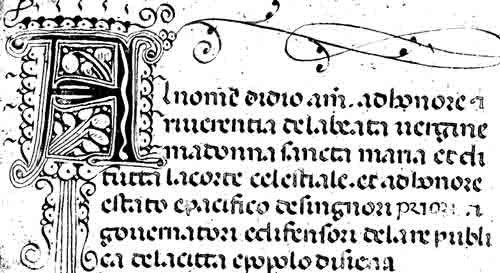 Al nome didio am. adhonore &
riverentia delabeata vergine
madonna sancta maria et di
tutta lacorte celestiale. et adhonore
estato epacifico desingnori priori &
governatori edifensori delare publi
ca delacitta epopolo disiena